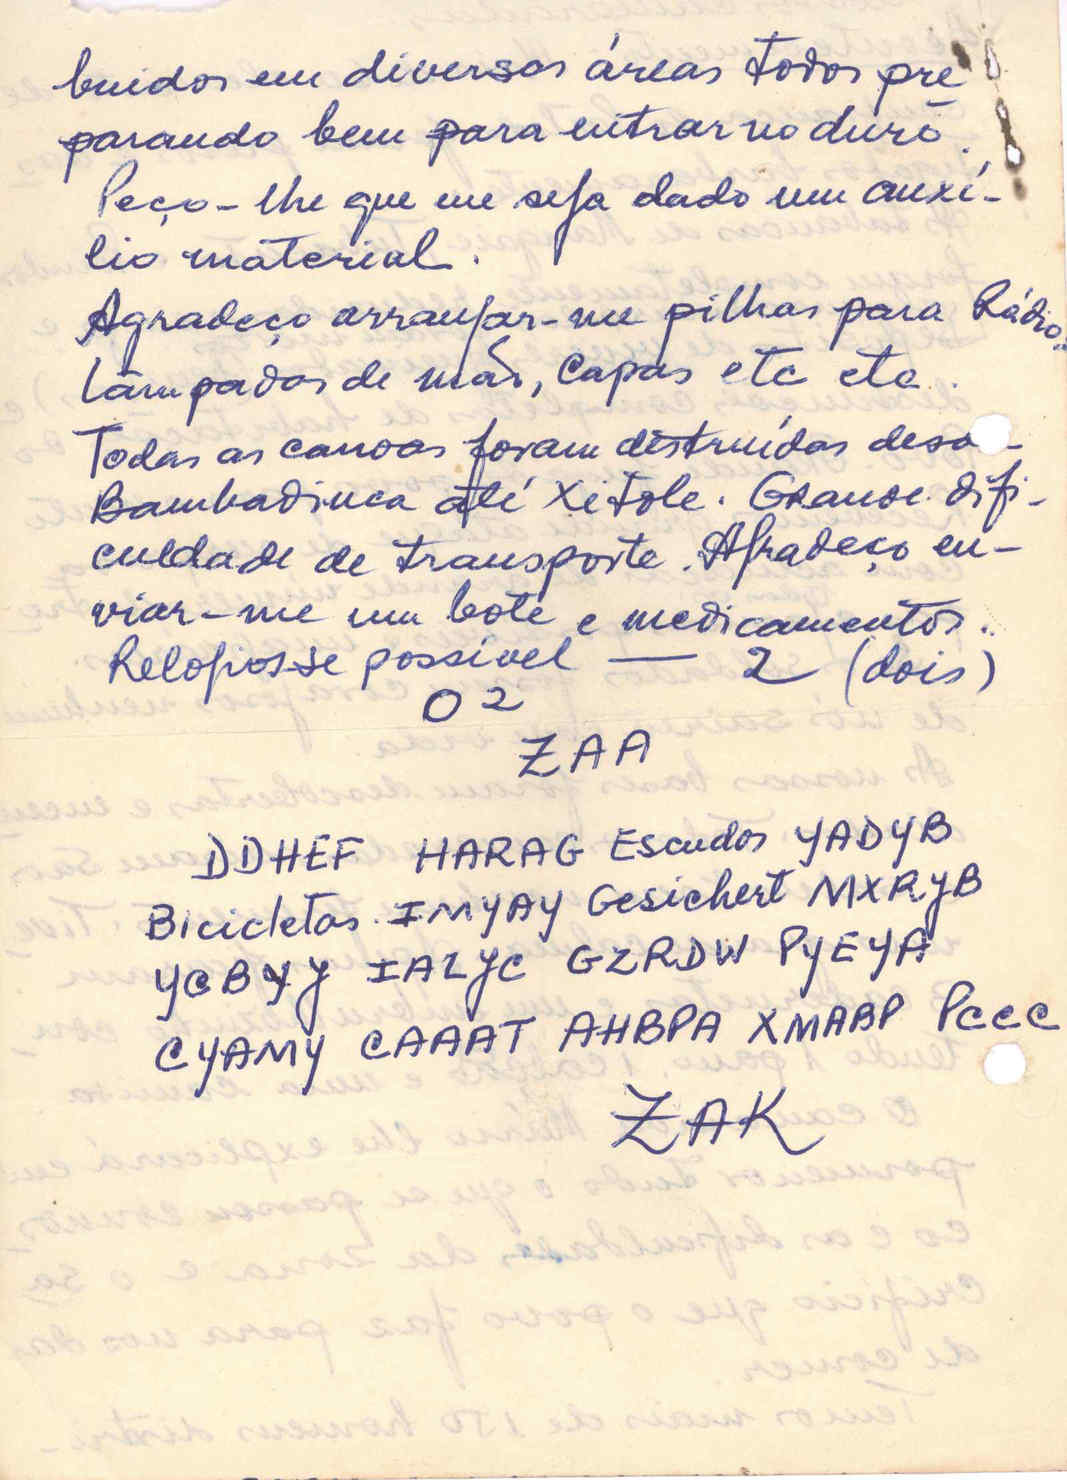 buidos em diversas áreas todos pre
parando bem para entrar no duro.
Peço-lhe que me seja dado um auxí-
lio material.
Agradeço arranjar-me pilhas para Rádio.
Lâmpadas de mão, Capas etc etc.
Todas as canoas foram destruídas desd -
Bambadinca até Xitole. Grande difi-
culdade de transporte. Agradeço en-
viar-me um bote e medicamentos.
Relogios-se possível — 2 (dois)
02
ZAA
DDHEF HARAG Escudos YADYB
Bicicletas IMYAY Gesichert MXRYB
YCBYY IALYC GZRDW PYEYA
CYAMY CAAAT AHBPA XMABP PCCC
ZAK